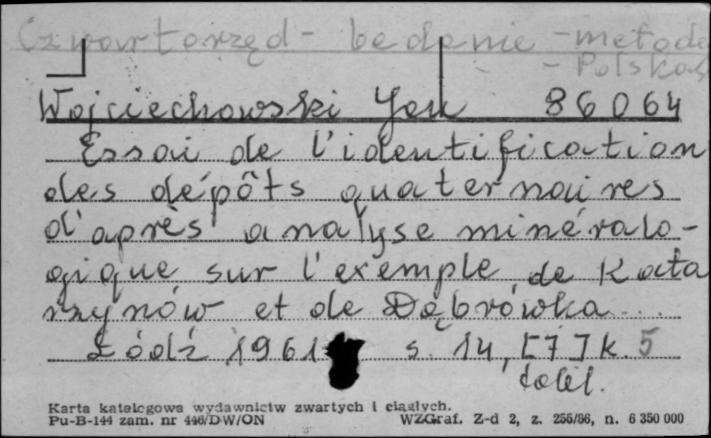 Czwartorzęd - badanie - metoda
- - Polska
Wojciechowski Jan 86064
Essai de l'identification
des dépôts quaternaires
d'après analyse minéralo-
gique sur l'exemple de Kata
rzynów et de Dąbrówka...
Łódź 1961 s. 14, [7] k. 5
tabl.
Karta katalogowa wydawnictw zwartych i ciągłych.
Pu-B-144 zam. nr 446/DW/ON WZGraf. Z-d 2, z. 256/86, n. 6 350 000